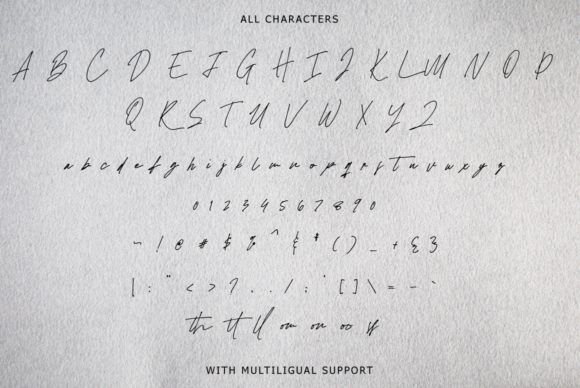 ALL CHARACTERS
A B C D E F G H I J K L M N O P
Q R S T U V W X Y Z
a b c d e f g h i j k l m n o p q r s t u v w x y z
0 1 2 3 4 5 6 7 8 9 0
~ ! @ # $ % ^ & * ( ) _ + { }
| : " < > ? , . / ; ' [ ] \ = - `
th tt ll om on oo ff
WITH MULTILIGUAL SUPPORT